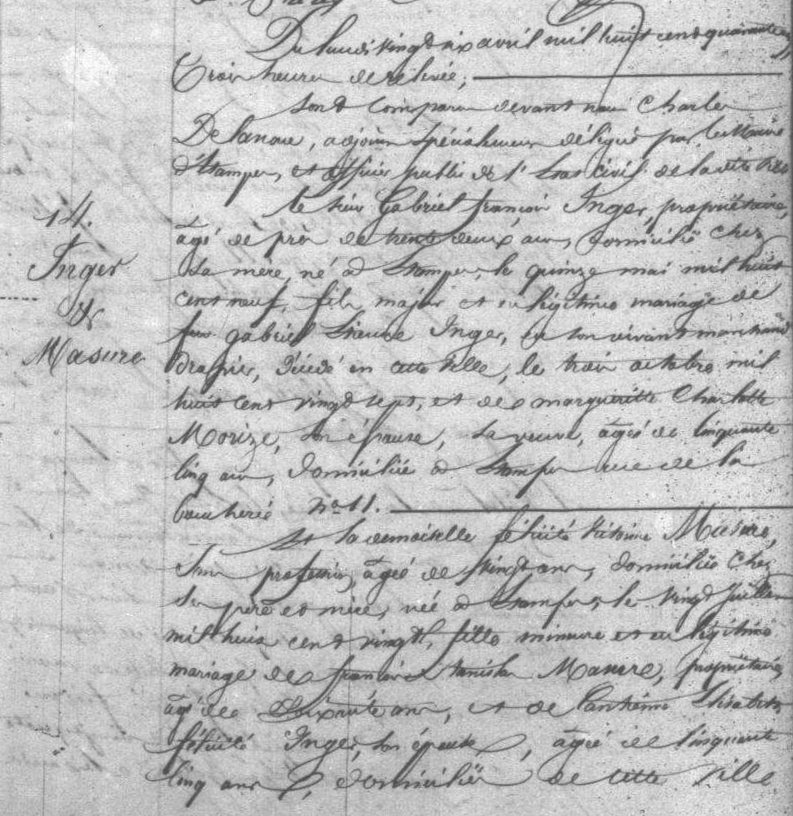 Du lundi vingt six avril mil huit cent quarante un
Trois heures de relevée,
Sont Comparus devant nous Charles
Delanoue, adjoint spécialement délégué par le Maire
d'Etampes, et officier public de l'état civil de la dite Ville
le sieur Gabriel françois Inger, propriétaire,
âgé de près de trente deux ans, domicilié chez
Sa mère, né à Etampes, le quinze mai mil huit
cent neuf, fils majeur et en légitime mariage de
feu gabriel Etienne Inger, en son vivant marchand
drapier, décédé en cette ville, le trois octobre mil
huit cent vingt sept, et de marguerite Charlotte
Morize, son épouse, Sa veuve, âgée de Cinquante
Cinq ans, domiciliée à Etampes rue de la
boucherie No. 11.
Et la demoiselle félicité Victoire Masure,
Sans profession, âgée de Vingt ans, domiciliée Chez
Ses père et mère, née à Etampes, le Vingt Juillet
mil huit cent vingt, fille mineure et en légitime
mariage de françois Stanislas Masure, propriétaire
âgé de Soixante ans, et de Catherine Elisabeth
félicité Inger, son épouse, âgée de Cinquante
Cinq ans, domiciliés de cette Ville
14.
Inger
&
Masure